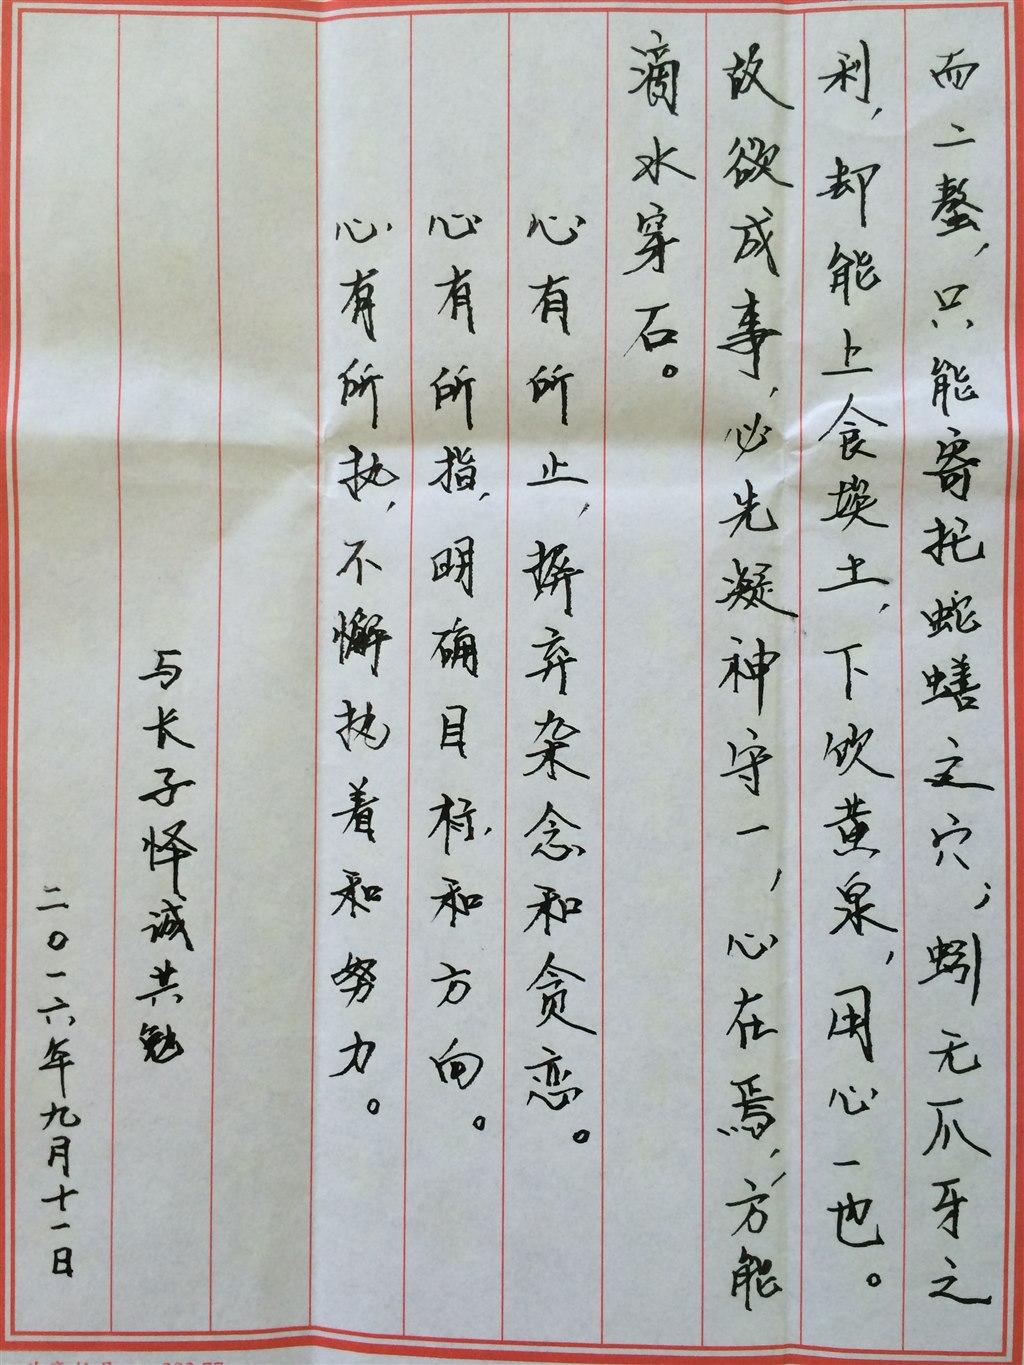 而二螯，只能寄托蛇蟮之穴；蚓无爪牙之
利，却能上食埃土，下饮黄泉，用心一也。
故欲成事，必先凝神守一，心在焉，方能
滴水穿石。
心有所止，摒弃杂念和贪恋。
心有所指，明确目标和方向。
心有所执，不懈执着和努力。
与长子怿诚共勉
二〇一六年九月十一日